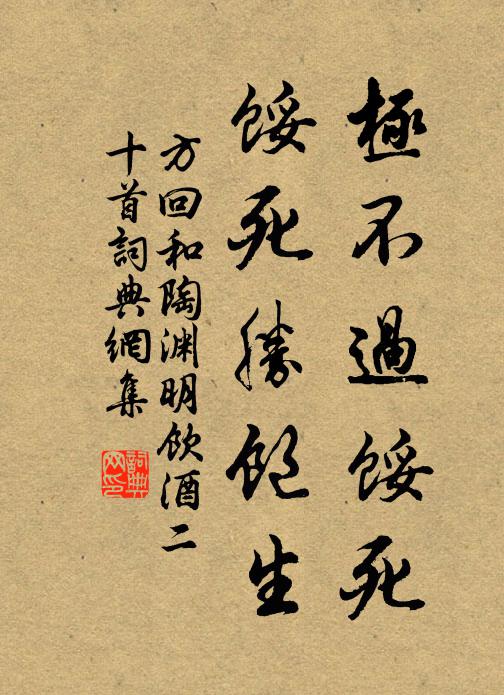 極不過餒死
餒死勝飽生
方回和陶渊明飲酒二
十首詞典網集
詞典
网印